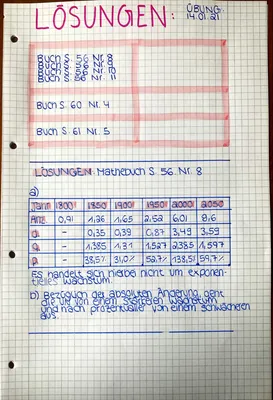 LÖSUNGEN:
ÜBUNG
14.01.21
Buch S. 56 Nr. 8
Buch S. 56 Nr. 9
Buch S. 56 Nr. 10
Buch S. 56 Nr. 11
Buch S. 60 Nr. 4
Buch S. 61 Nr. 5
LÖSUNGEN: Mathebuch S. 56. Nr. 8
a)
Jahr 1800 1850 1900 1950 2000 2050
Anz. 0,91 1,26 1,65 2,52 6,01 9,6
d - 0,35 0,39 0,87 3,49 3,59
q - 1,385 1,31 1,527 2,385 1,597
p - 38,5% 31,0% 52,7% 138,5% 59,7%
Es handelt sich hierbei nicht um exponen-
tielles Wachstum.
b) Bezüglich der absoluten Änderung geht
die UV von einem stärkeren Wachstum
und nach prozentualle von einem schwächeren
aus.